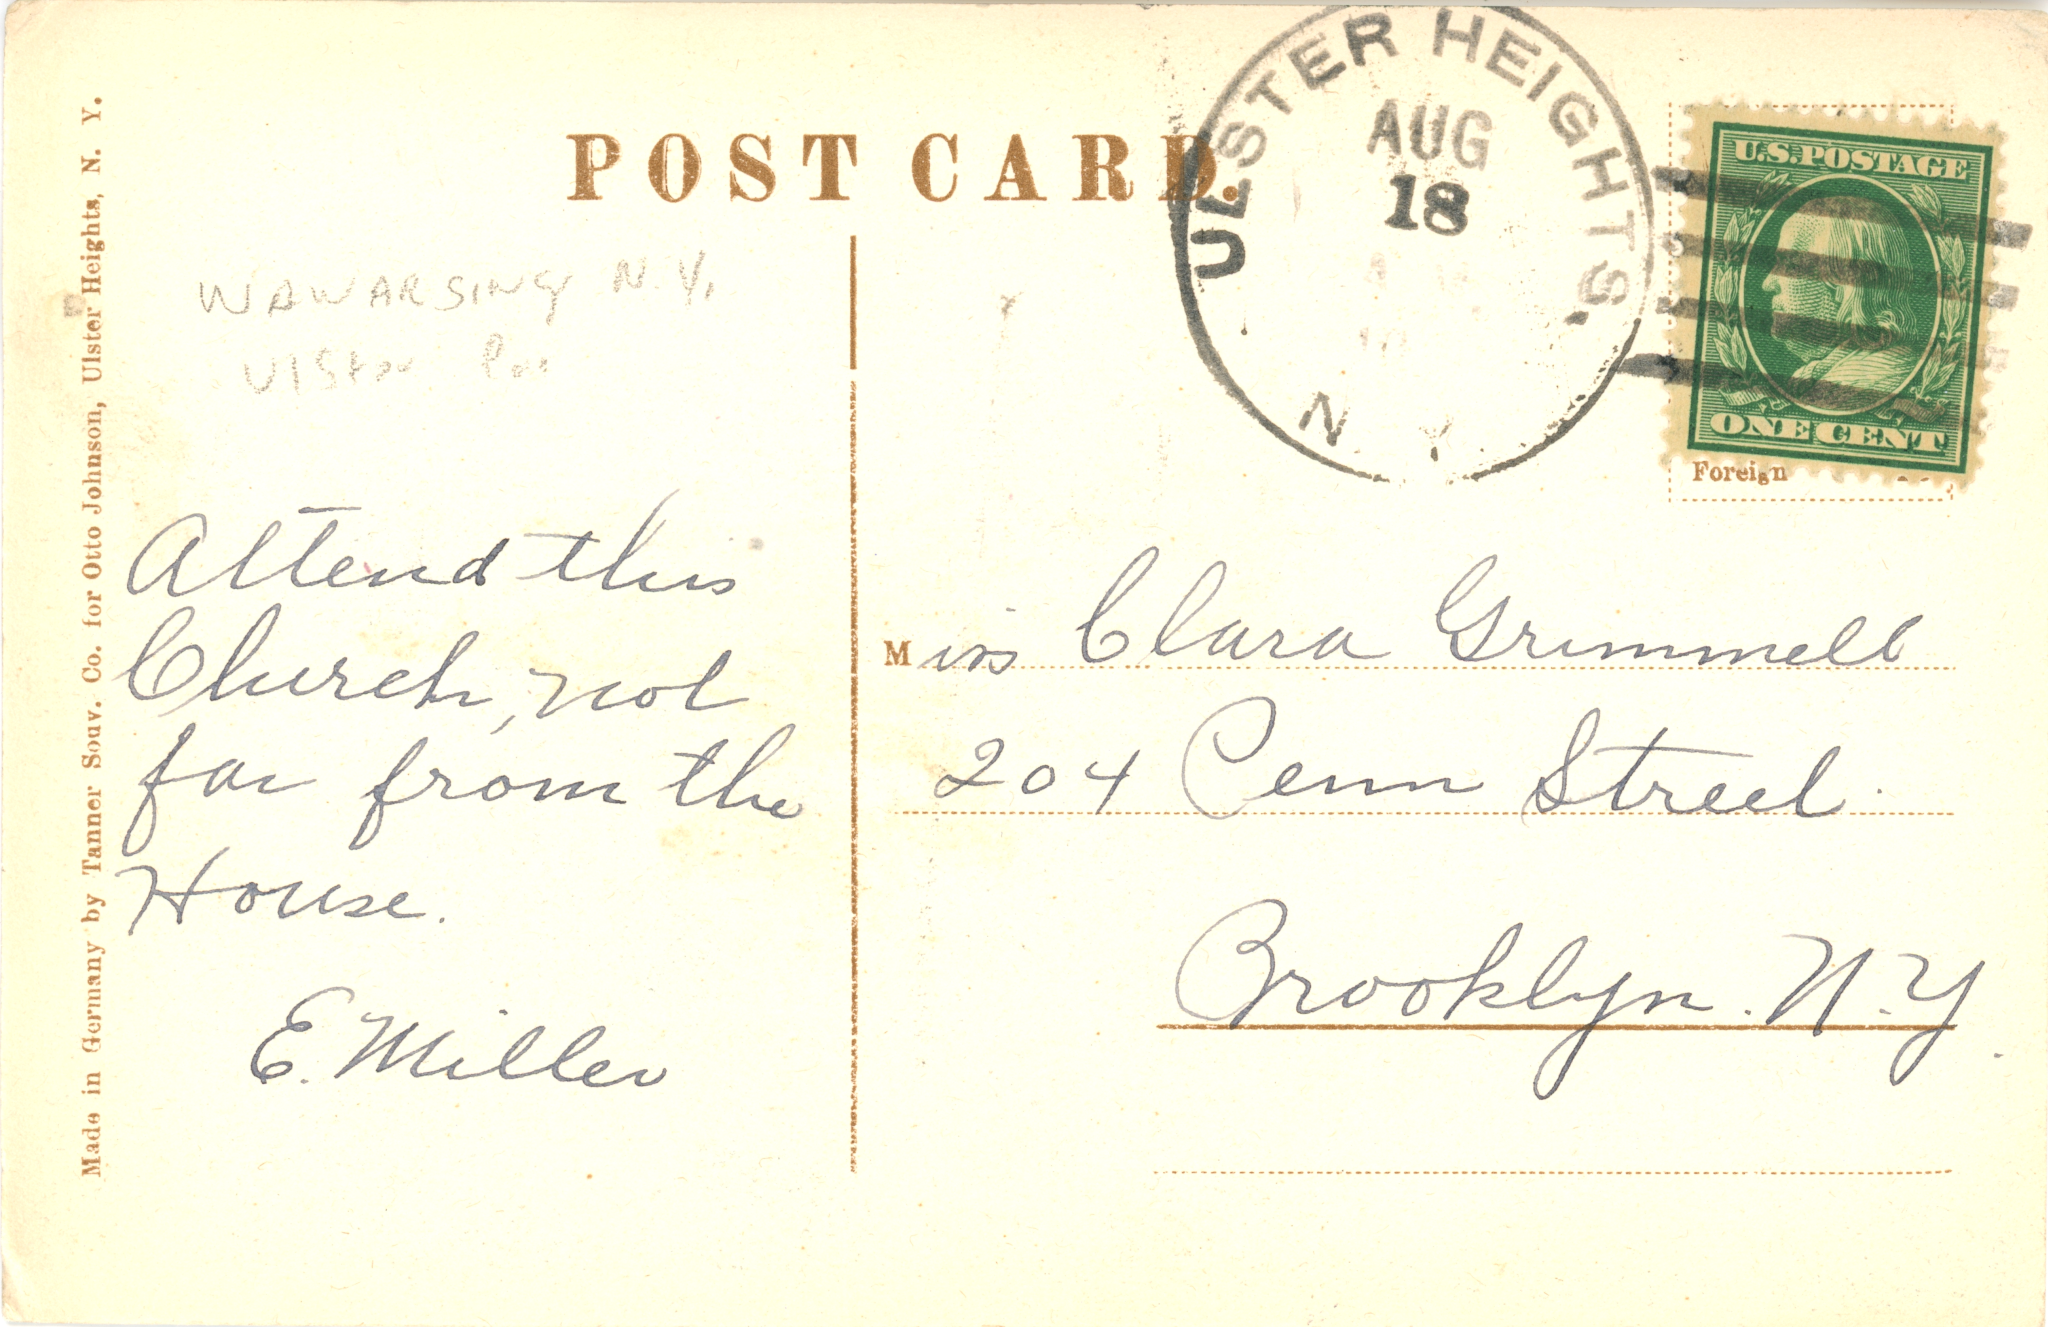 POST CARD.
ULSTER HEIGHTS,
N Y
AUG
18
U.S. POSTAGE
ONE CENT
Foreign
WAWARSING N.Y.
Ulster
Attend this
Church, not
far from the
House.
E. Miller
Miss Clara Grimmell
204 Penn Street
Brooklyn. N.Y.
Made in Germany by Tanner Souv. Co. for Otto Johnson, Ulster Heights, N. Y.